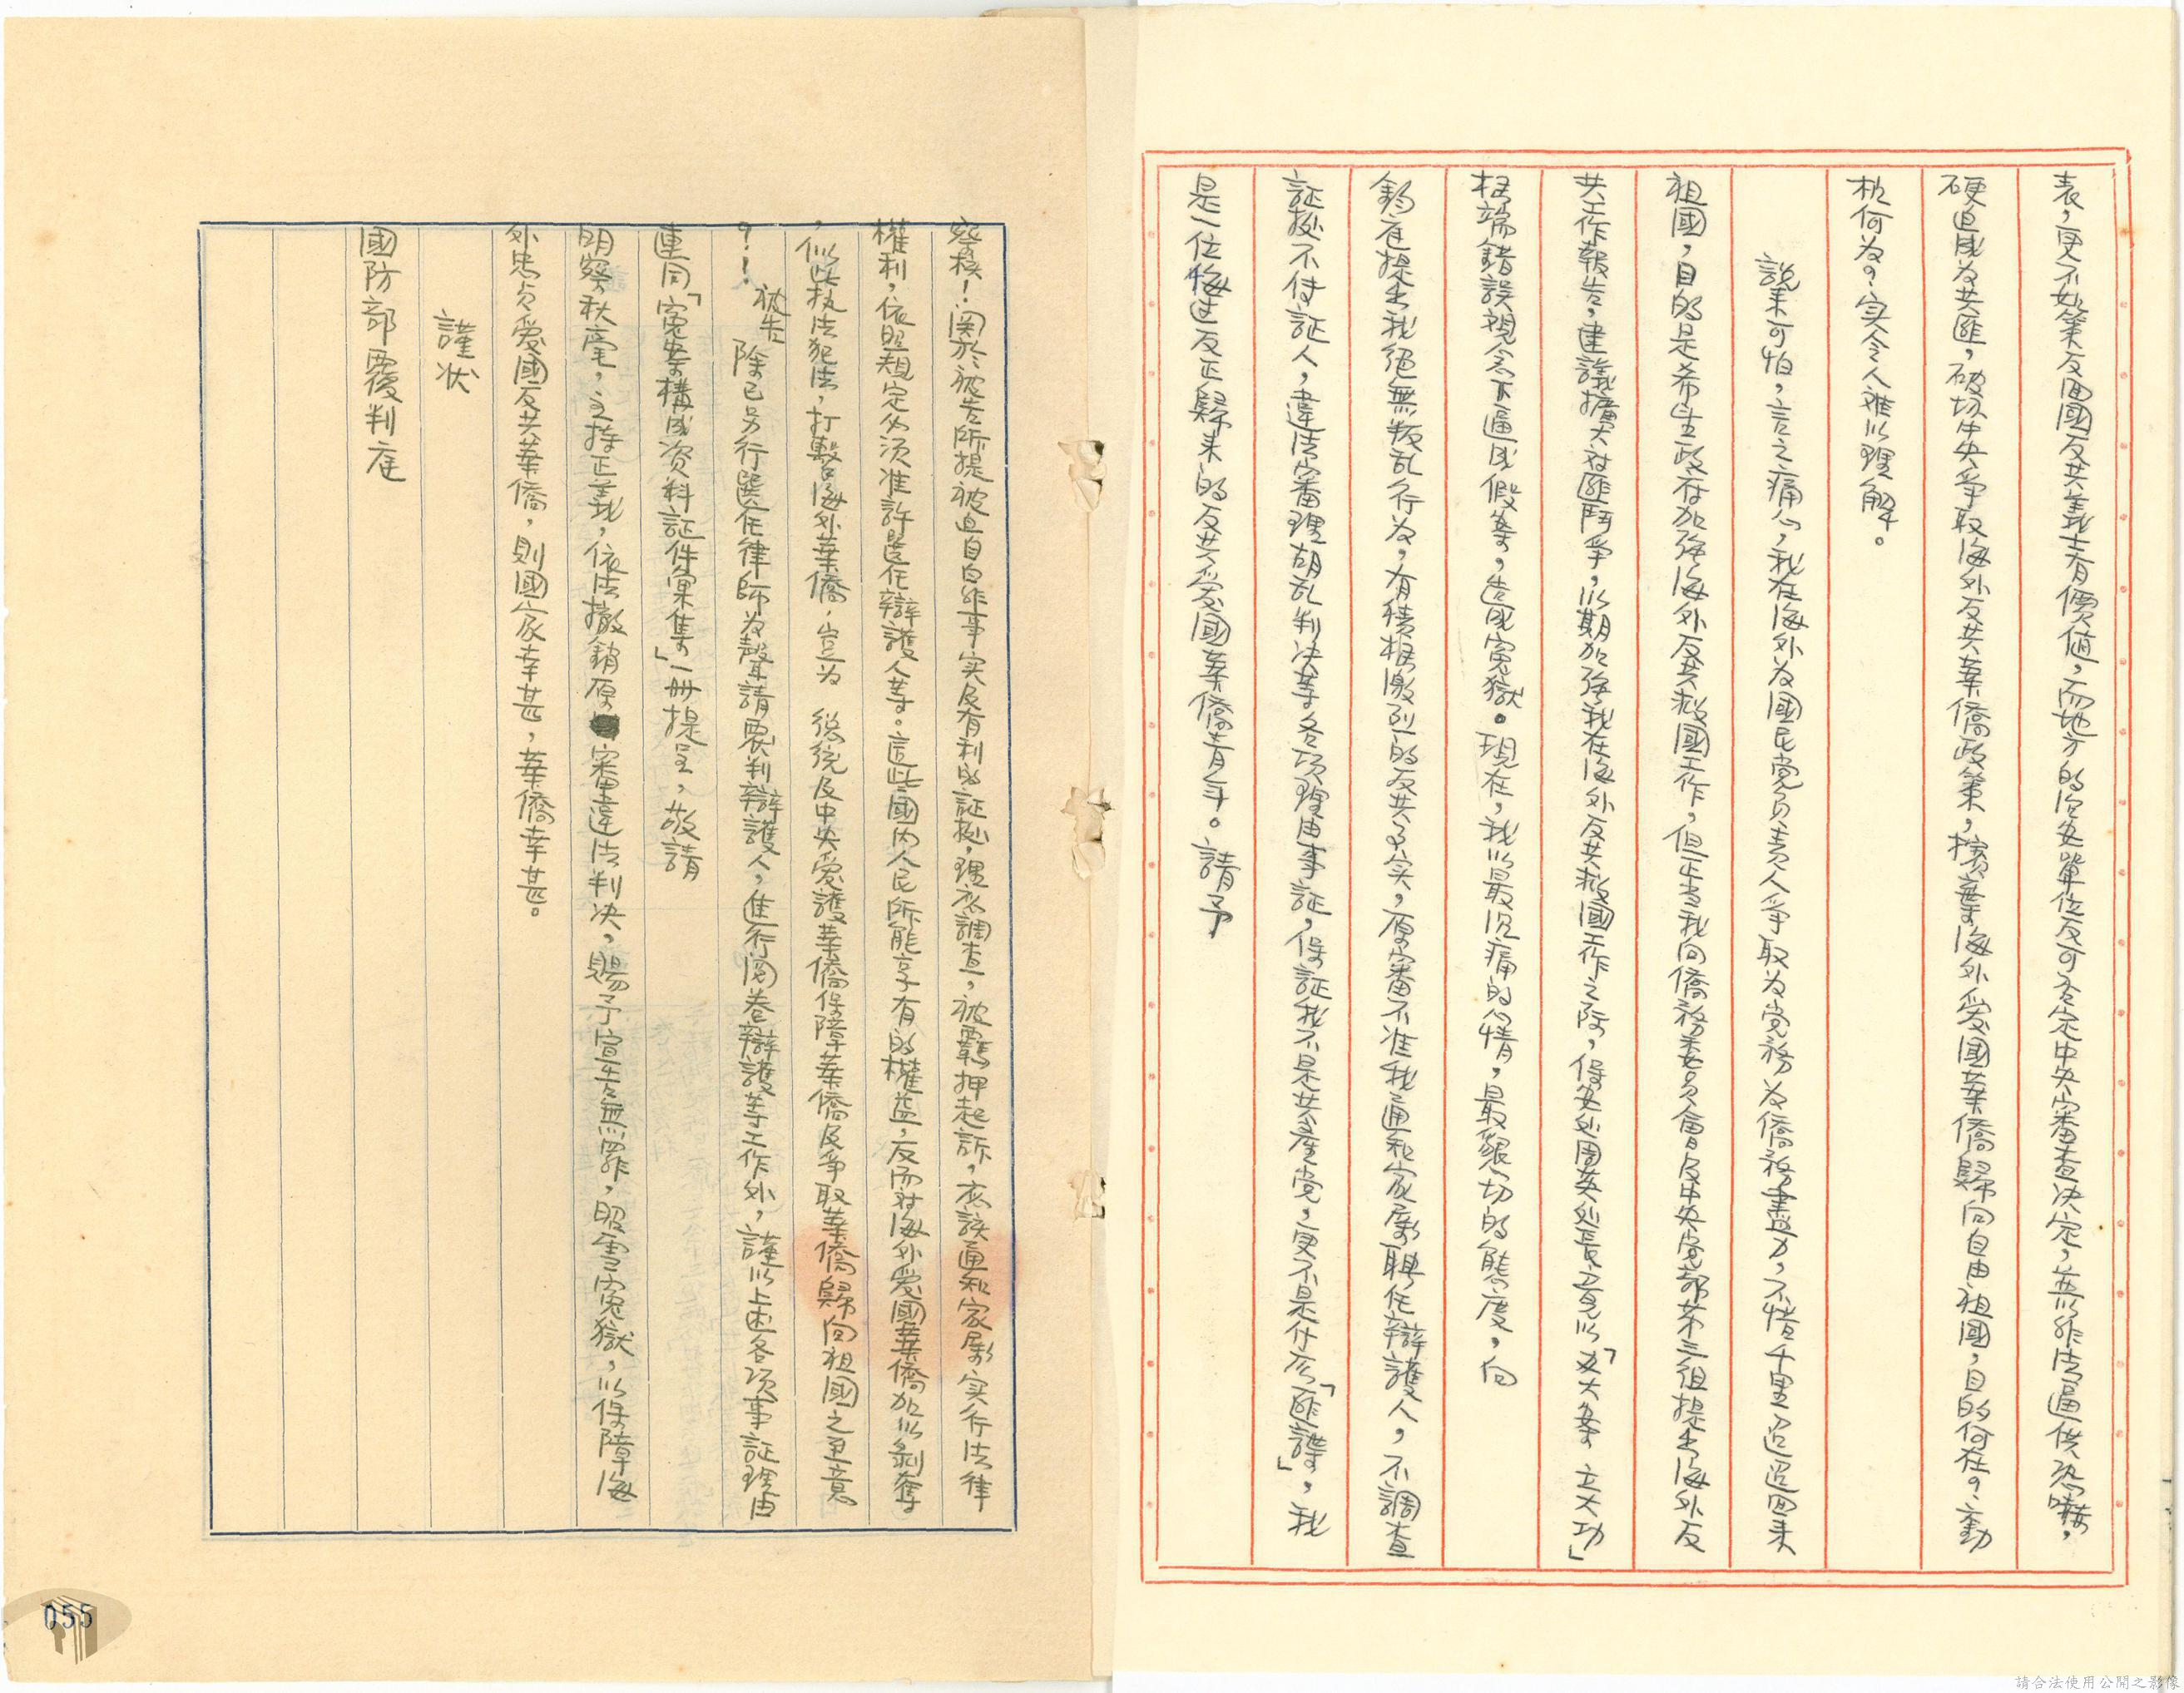 表，更不如策反回國反共義士有價值，而地方的保安單位反可否定中央審查決定，並以非法逼供恐嚇，
硬迫成为共匪，破坏中央爭取海外反共華僑政策，擯棄海外爱國華僑歸向自由祖國，目的何在？主動
机何为？实令人难以理解。
說来可怕，言之痛心，我在海外为國民党負责人爭取为党務为僑務盡力，不惜千里迢迢回来
祖國，目的是希望政府加强海外反共救國工作，但正当我向僑務委員會及中央党部第三組提出海外反
共工作報告，建議擴大对匪鬥爭，以期加强我在海外反共救國工作之际，保安处周英处長竟以「办大案 立大功」
极端錯誤观念下逼成假案，造成寃獄。現在，我以最沉痛的心情，最懇切的態度，向
鈞庭提出我絕無叛乱行为，有積极激烈的反共事实，原審不准我通知家屬聘任辯護人，不調查
証據不付証人，違法審理胡乱判决等各項理由事証，保証我不是共產党，更不是什広「匪諜」，我
是一位悔过反正歸来的反共爱國華僑青年。請予
察核！関於被告所提被迫自白非事实及有利的証據，理应調查，被羈押起訴，应該通知家屬实行法律
權利，依照規定必須准許选任辯護人等。這些國内人民所能享有的權益，反而对海外爱國華僑加以剥奪
，似此执法犯法，打擊海外華僑，豈为 總統及中央爱護華僑保障華僑及爭取華僑歸向祖國之至意
？！被告除已另行選任律師为聲請覆判辯護人，進行閱卷辯護等工作外，謹以上述各項事証理由
連同「寃案構成資料証件彙集」一册提呈，敬請
明察秋毫，主持正義，依法撤銷原審違法判决，賜予宣告無罪，昭雪寃獄，以保障海
外忠貞爱國反共華僑，則國家幸甚，華僑幸甚。
謹状
國防部覆判庭
055
請合法使用公開之影像